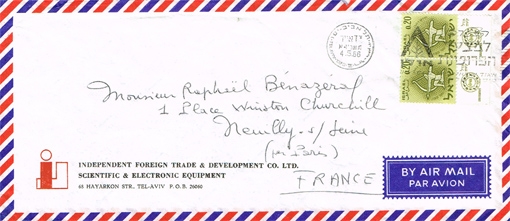 4.9.66
0.20
Monsieur Raphaël Bénazéraf
1 Place Winston Churchill
Neuilly-s/Seine
(per Paris)
FRANCE
INDEPENDENT FOREIGN TRADE & DEVELOPMENT CO. LTD.
SCIENTIFIC & ELECTRONIC EQUIPMENT
65 HAYARKON STR., TEL-AVIV P.O.B. 26060
BY AIR MAIL
PAR AVION